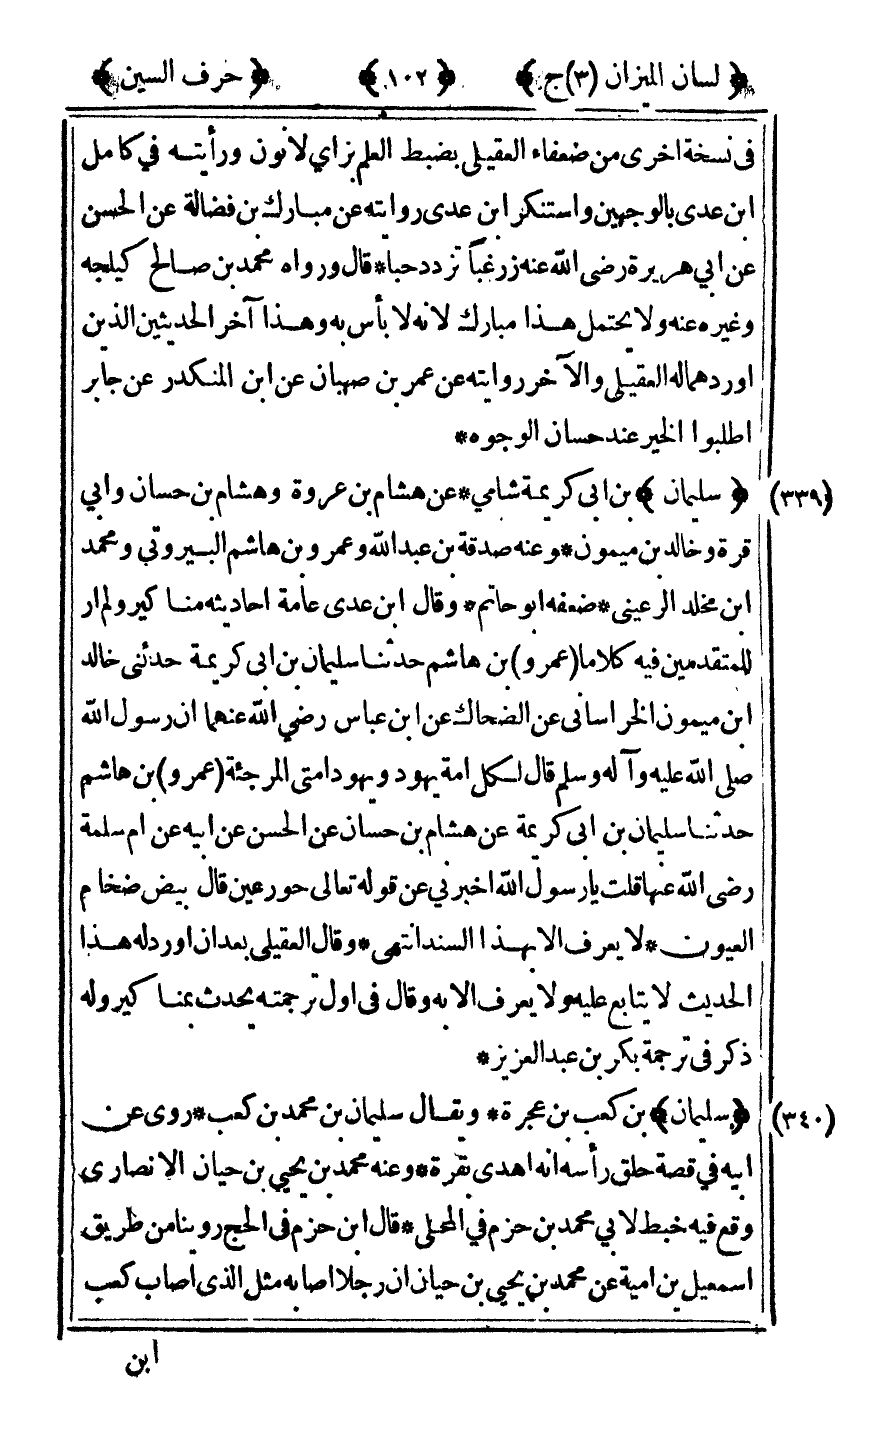 ﴿ لسان الميزان (٣)ج ﴾ ﴿ ١٠٢ ﴾ ﴿ حرف السين ﴾
فى نسخة اخرى من ضعفاء العقيلى بضبط العلم بزاي لا نون ورأيته في كامل
ابن عدى بالوجهين واستنكر ابن عدى روايته عن مبارك بن فضالة عن الحسن
عن ابي هريرة رضى الله عنه زر غباً تزدد حبا*قال ورواه محمد بن صالح كيلجه
وغيره عنه ولا يحتمل هذا مبارك لانه لا بأس به وهذا آخر الحديثين الذين
اوردهما له العقيلى والآخر روايته عن عمر بن صهبان عن ابن المنكدر عن جابر
اطلبوا الخير عند حسان الوجوه*
(٣٣٩) ﴿ سليمان ﴾ بن ابى كريمة شامي*عن هشام بن عروة وهشام بن حسان وابي
قرة وخالد بن ميمون*وعنه صدقة بن عبد الله وعمرو بن هاشم البيروتي ومحمد
ابن مخلد الرعيني*ضعفه ابو حاتم* وقال ابن عدى عامة احاديثه مناكير ولم ار
للمتقدمين فيه كلاما(عمرو)بن هاشم حدثنا سليمان بن ابى كريمة حدثنى خالد
ابن ميمون الخراسانى عن الضحاك عن ابن عباس رضي الله عنهما ان رسول الله
صلى الله عليه وآله وسلم قال لكل امة يهود ويهود امتى المرجئة(عمرو)بن هاشم
حدثنا سليمان بن ابى كريمة عن هشام بن حسان عن الحسن عن ابيه عن ام سلمة
رضى الله عنها قلت يا رسول الله اخبرني عن قوله تعالى حور عين قال بيض ضخام
العيون*لا يعرف الا بهذا السند انتهى*وقال العقيلى بعد ان اورد له هذا
الحديث لا يتابع عليه ولا يعرف الا به وقال فى اول ترجمته يحدث بمناكير وله
ذكر فى ترجمة بكر بن عبد العزيز*
(٣٤٠) ﴿سليمان﴾ بن كعب بن عجرة* ويقال سليمان بن محمد بن كعب*روى عن
ابيه في قصة حلق رأسه انه اهدى بقرة*وعنه محمد بن يحيي بن حيان الانصارى
وقع فيه خبط لابي محمد بن حزم في المحلى*قال ابن حزم فى الحج روينا من طريق
اسمعيل بن امية عن محمد بن يحيى بن حيان ان رجلا اصابه مثل الذى اصاب كعب
ابن